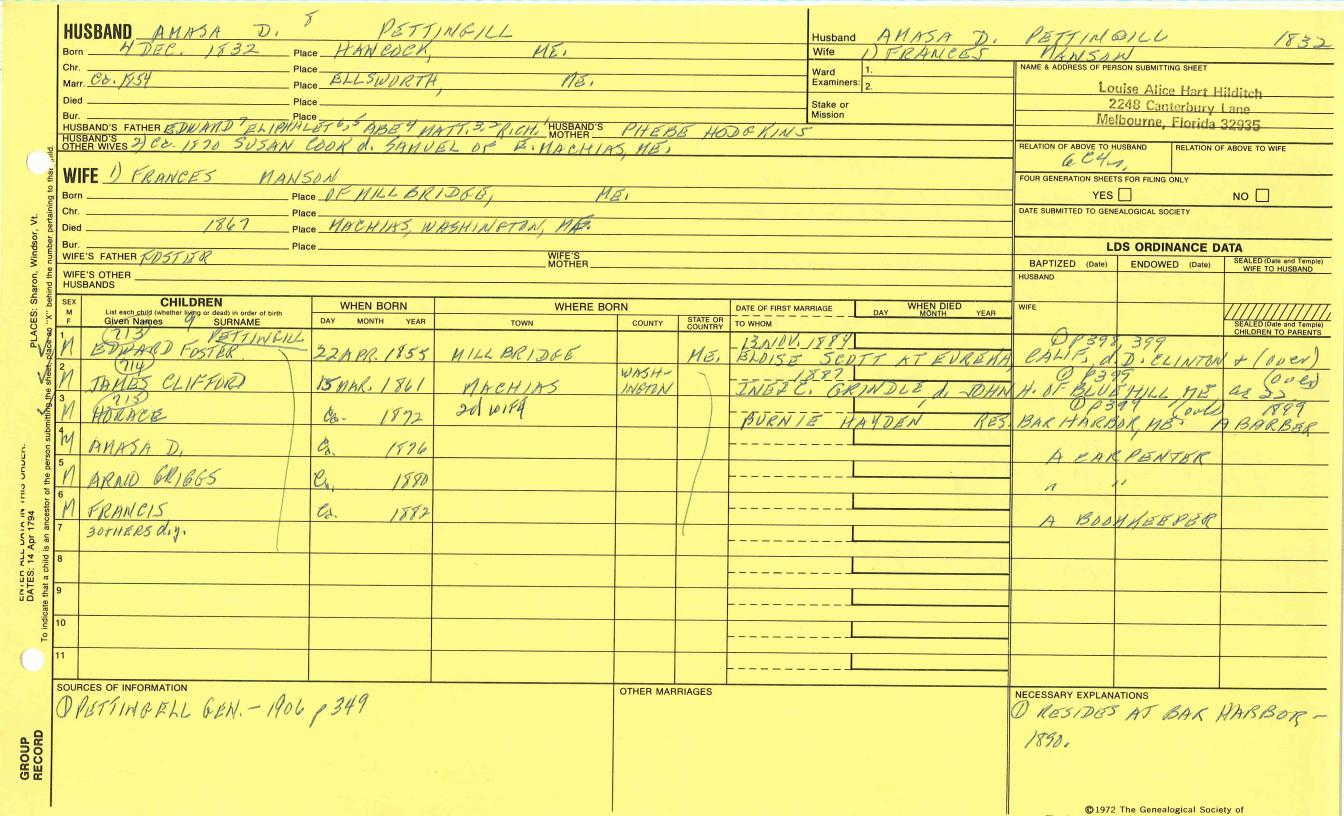 HUSBAND AMASA D. 8 PETTINGILL
Born 4 DEC. 1832 Place HANCOCK, ME.
Chr. Place
Marr. Ca. 1854 Place ELLSWORTH, ME.
Died Place
Bur. Place
HUSBAND'S FATHER EDWARD 7 ELIPHALET 6, 5 ABE 4 MATT. 3, 2 RICH. 1 HUSBAND'S MOTHER PHEBE HODGKINS
HUSBAND'S OTHER WIVES 2) Ca. 1870 SUSAN COOK d. SAMUEL OF E. MACHIAS, ME.
Husband AMASA D. PETTINGILL 1832
Wife 1) FRANCES MANSON
Ward Examiners: 1.
2.
Stake or Mission
NAME & ADDRESS OF PERSON SUBMITTING SHEET
Louise Alice Hart Hilditch
2248 Canterbury Lane
Melbourne, Florida 32935
RELATION OF ABOVE TO HUSBAND RELATION OF ABOVE TO WIFE
FOUR GENERATION SHEETS FOR FILING ONLY
YES NO
DATE SUBMITTED TO GENEALOGICAL SOCIETY
WIFE 1) FRANCES MANSON
Born Place OF MILLBRIDGE, ME.
Chr. Place
Died 1867 Place MACHIAS, WASHINGTON, ME.
Bur. Place
WIFE'S FATHER FOSTER WIFE'S MOTHER
WIFE'S OTHER HUSBANDS
LDS ORDINANCE DATA
BAPTIZED (Date) ENDOWED (Date) SEALED (Date and Temple) WIFE TO HUSBAND
HUSBAND
WIFE
SEALED (Date and Temple) CHILDREN TO PARENTS
SEX M F CHILDREN WHEN BORN WHERE BORN DATE OF FIRST MARRIAGE WHEN DIED
List each child (whether living or dead) in order of birth
Given Names 9 SURNAME DAY MONTH YEAR TOWN COUNTY STATE OR COUNTRY TO WHOM DAY MONTH YEAR
1 M (713) EDWARD FOSTER PETTINGILL 22 APR. 1855 MILLBRIDGE ME. 13 NOV. 1889 ① P 398, 399
ELOISE SCOTT AT EUREKA, CALIF. d. D. CLINTON + (over)
2 M (714) JAMES CLIFFORD 15 MAR. 1861 MACHIAS WASHINGTON 1887 ① P399 (over)
INEZ C. GRINDLE d. JOHN H. OF BLUE HILL ME
3 M (715) HORACE Ca. 1872 2d WIFE ① P399 (over) 1899
BURNIE HAYDEN RES. BAR HARBOR, ME. A BARBER
4 M AMASA D. Ca. 1876 A CARPENTER
5 M ARNO GRIGGS Ca. 1880 " "
6 M FRANCIS Ca. 1882 A BOOKKEEPER
7 3 OTHERS d.y.
8
9
10
11
SOURCES OF INFORMATION
① PETTINGELL GEN. - 1906 p 349
OTHER MARRIAGES
NECESSARY EXPLANATIONS
① RESIDES AT BAR HARBOR -
1890.
©1972 The Genealogical Society of
PLACES: Sharon, Windsor, Vt.
ENTER ALL DATA IN THIS ORDER:
DATES: 14 Apr 1794
To indicate that a child is an ancestor of the person submitting the sheet, place an "X" behind the number pertaining to that child.
GROUP RECORD